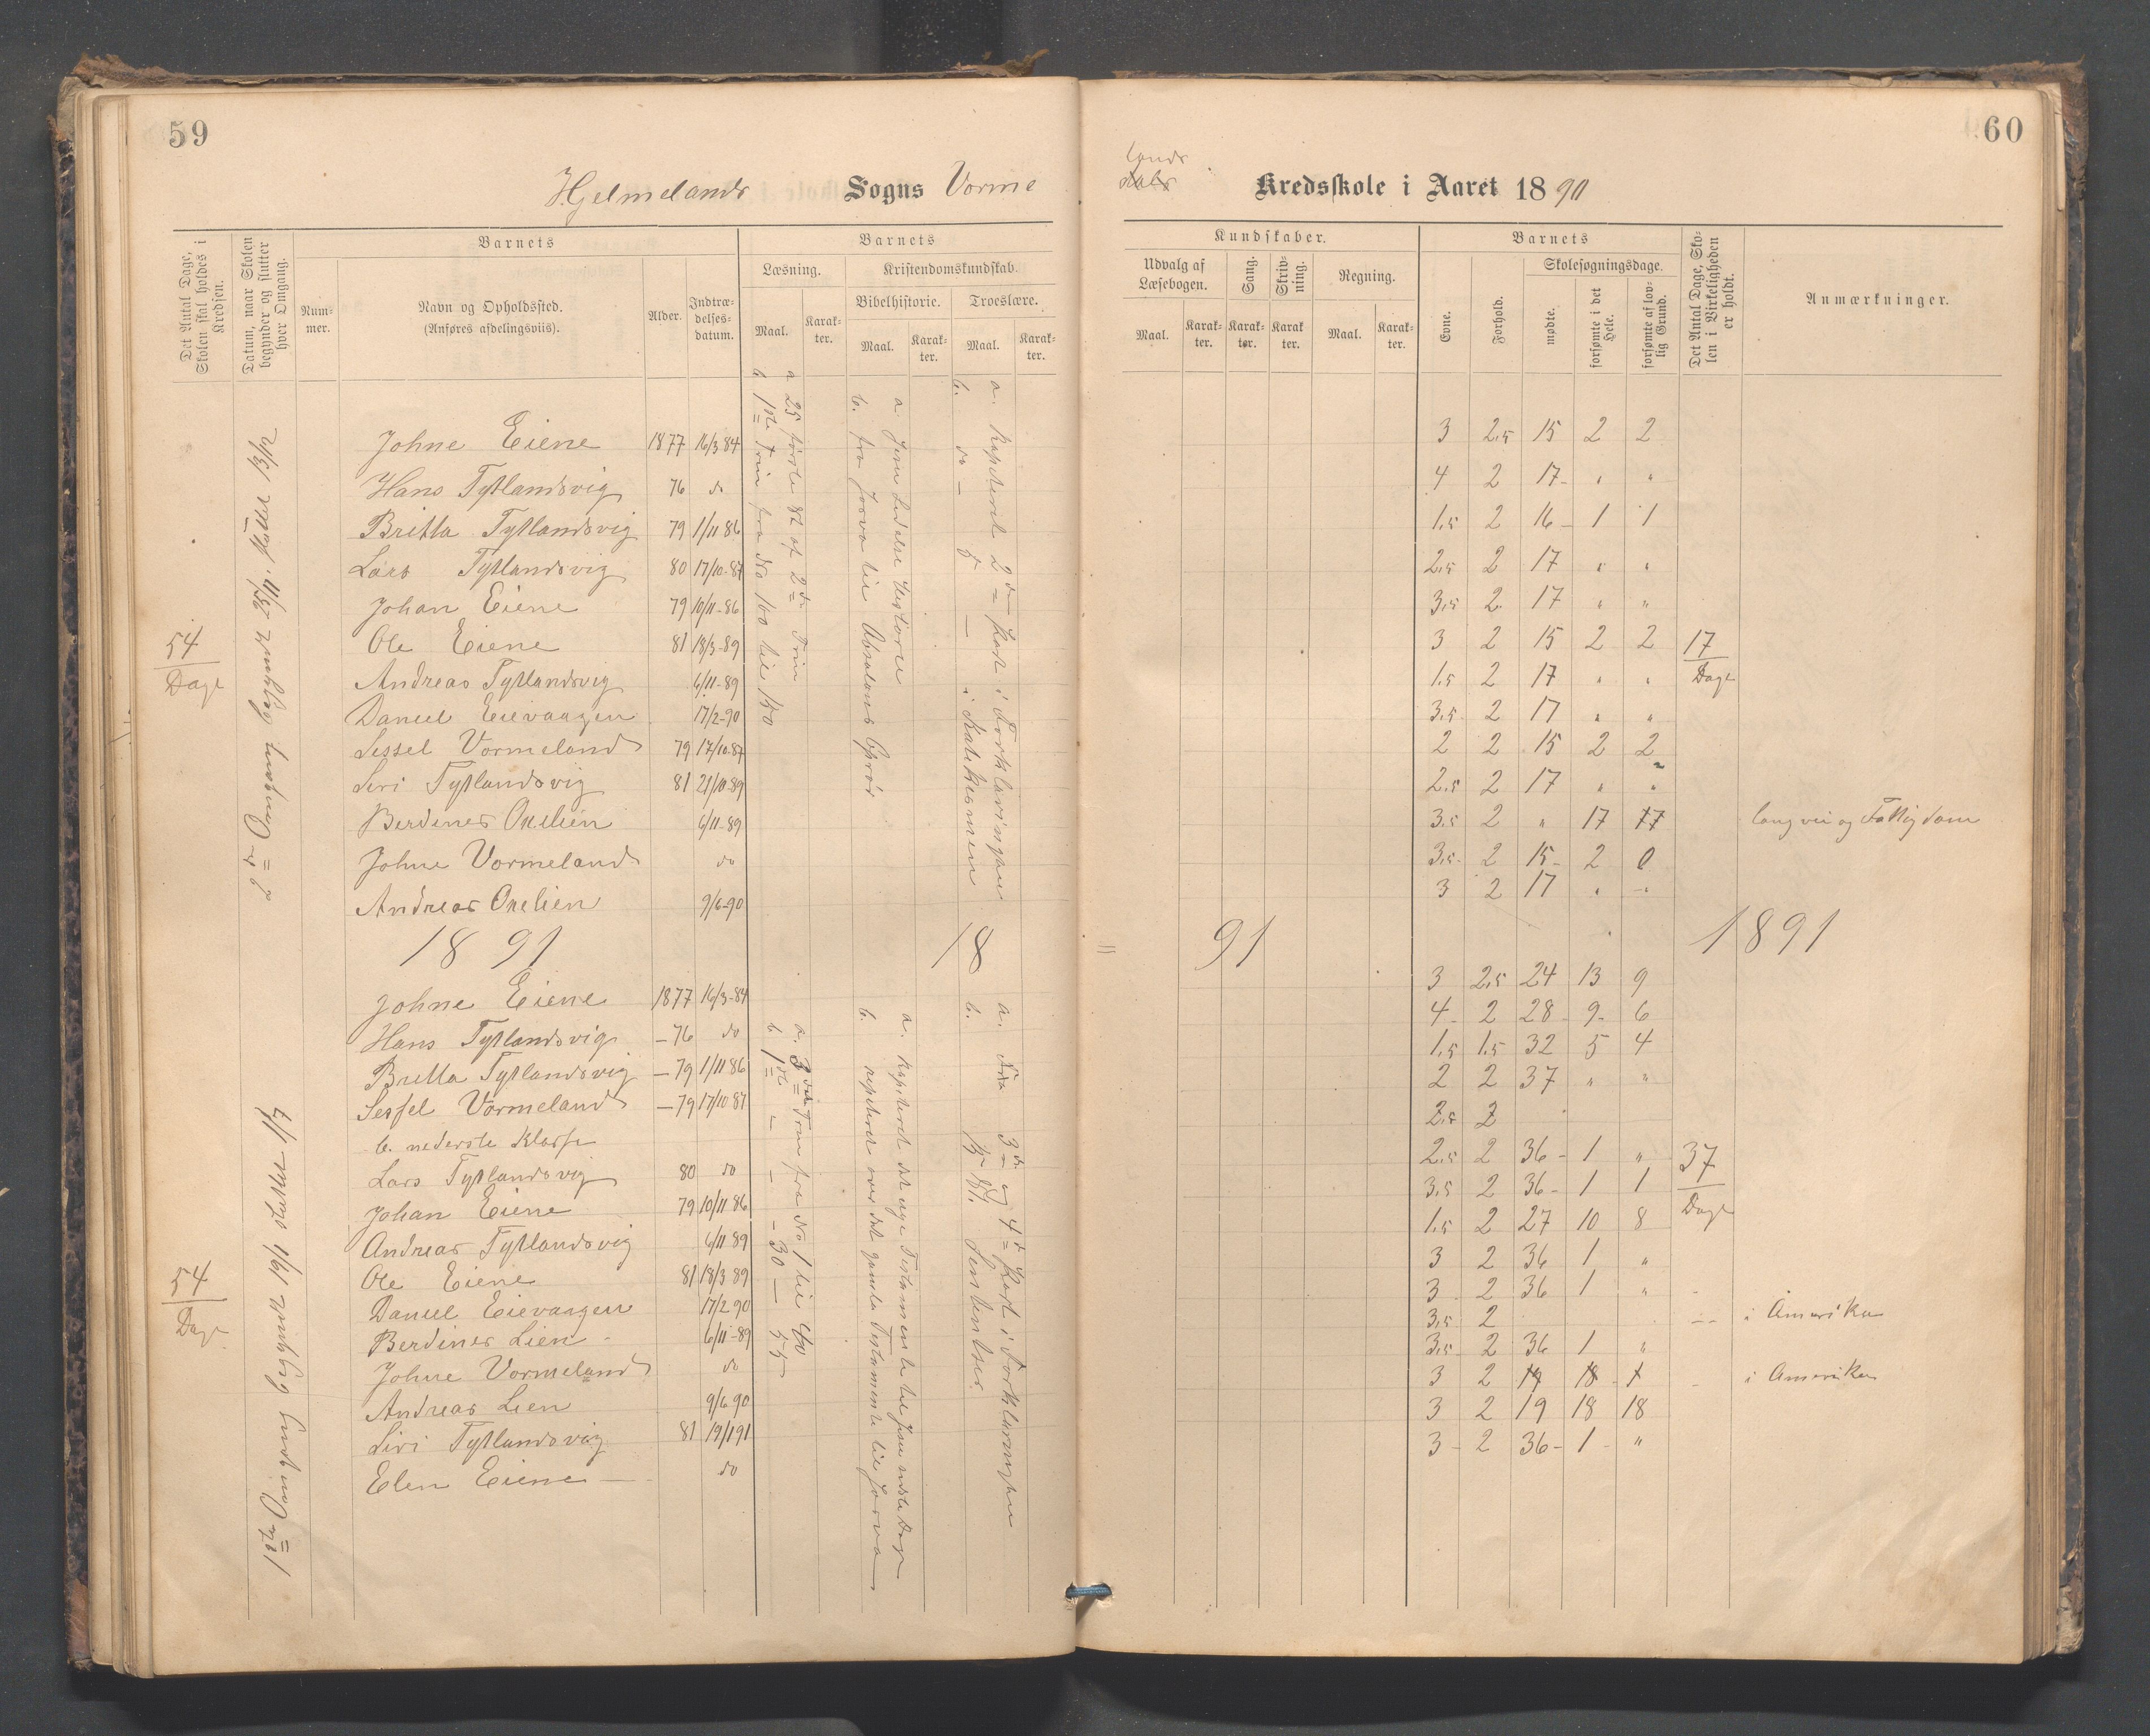 59
Hjelmelands Sogns Vorme
Det Antal Dage, Skolen skal holdes i Kredsen.
Datum, naar Skolen begynder og slutter hver Omgang.
Barnets
Num-mer.
Navn og Opholdssted.
(Anføres afdelingsviis).
Alder.
Indtræ-delses-datum.
Barnets
Læsning.
Kristendomskundskab.
Bibelhistorie.
Troeslære.
Maal.
Karak-ter.
Maal.
Karak-ter.
Maal.
Karak-ter.
54
Dage
2den Omgang begyndt 25/11. sluttet 13/12
Johne Eiene 1877 16/3 84
Hans Tytlandsvig 76 do
Britta Tytlandsvig 79 1/11 86
Lars Tytlandsvig 80 17/10-87
Johan Eiene 79 10/11-86
Ole Eiene 81 18/3-89
Andreas Tytlandsvig 6/11-89
Daniel Eievaagen 17/2-90
Sessel Vormeland 79 17/10-87
Siri Tytlandsvig 81 21/10-89
Berdines Onelien 6/11-89
Johne Vormeland do
Andreas Onelien 9/6-90
a 25 første St af 2det Trin
b 1ste Trin fra No 100 til 150
a. Jesu Lidelses Historie
b. fra Josva til Absalons Oprør
a. Repeteret 2den Part i Forklaringen
b. do - 5 - i Katekismen
1891 18
1ste Omgang begyndt 19/1 sluttet 1/7
54
Dage
Johne Eiene 1877 16/3-84
Hans Tytlandsvig -76 do
Britta Tytlandsvig -79 1/11 86
Sessel Vormeland -79 17/10 87
b. nederste Klasse
Lars Tytlandsvig 80 do
Johan Eiene 79 10/11 86
Andreas Tytlandsvig 6/11 89
Ole Eiene 81 18/3 89
Daniel Eievaagen 17/2 90
Berdines Lien 6/11-89
Johne Vormeland do
Andreas Lien 9/6 90
Siri Tytlandsvig 81 19/1 91
Elen Eiene do
a. 3die Trin fra No 1 til 40
b 1ste - - - 30 - 55
a. Repeteret det nye Testamente til Jesu sidste Dage
b. repeteret over det gamle Testamente til Josva
a. Fra 3die og 4de Part i Forklaringen
60
lands
Kredsskole i Aaret 1890
Kundskaber.
Udvalg af Læsebogen.
Sang.
Skriv-ning.
Regning.
Maal.
Karak-ter.
Karak-ter.
Karak-ter.
Maal.
Karak-ter.
Barnets
Evne.
Forhold.
Skolesøgningsdage.
mødte.
forsømte i det Hele.
forsømte af lov-lig Grund.
Det Antal Dage, Sko-len i Virkeligheden er holdt.
Anmærkninger.
3 2,5 15 2 2
4 2 17 " "
1,5 2 16 1 1
2,5 2 17 " "
3,5 2 17 " "
3 2 15 2 2 17
1,5 2 17 " " Dage
3,5 2 17 " "
2 2 15 2 2
2,5 2 17 " "
3,5 2 " 17 17 lang vei og Fattigdom
3,5 2 15 2 0
3 2 17 " "
91 1891
3 2,5 24 13 9
4 2 28 9 6
1,5 1,5 32 5 4
2 2 37 " "
2,5 2
2,5 2 36 1 " 37
3,5 2 36 1 1
1,5 2 27 10 8 Dage
3 2 36 1 "
3 2 36 1 "
3,5 2 i Amerika
3,5 2 36 1 "
3 2 19 18 1 i Amerika
3 2 19 18 18
3 2 36 1 "